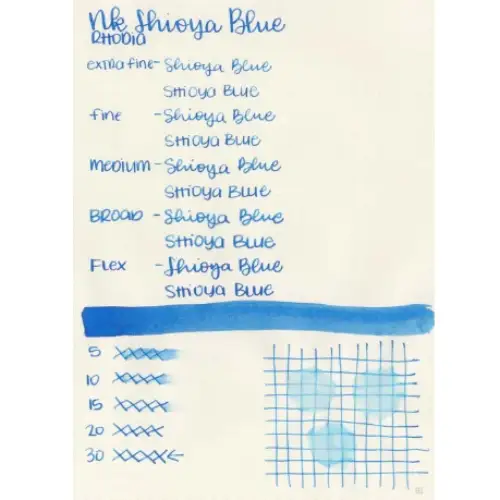 NK Shioya Blue
RHODIA
extra fine - Shioya Blue
SHIOYA BLUE
fine - Shioya Blue
SHIOYA BLUE
MEDIUM - Shioya Blue
SHIOYA BLUE
BROAD - Shioya Blue
SHIOYA BLUE
FLEX - Shioya Blue
SHIOYA BLUE
5
10
15
20
30